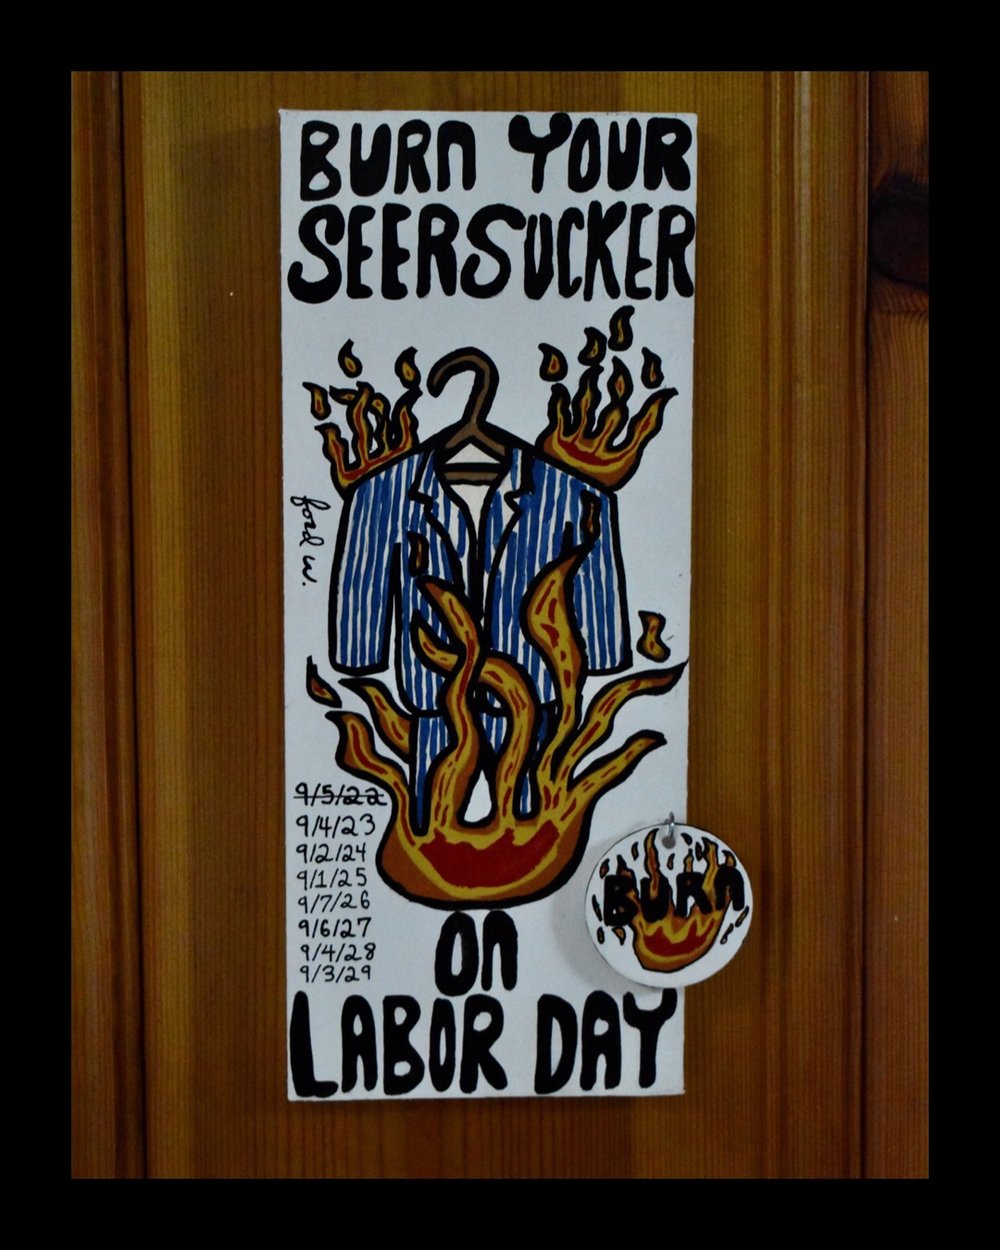 BURN YOUR
SEERSUCKER
ford w.
9/5/22
9/4/23
9/2/24
9/1/25
9/7/26
9/6/27
9/4/28
9/3/29
BURN
ON
LABOR DAY